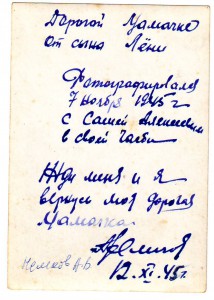 Дорогой Мамачке
От сына Лёни
Фотографировался
7 Ноября 1945 г
с Сашей Алексеевым
в своей части
Жди меня и я
вернусь моя дорогая
Мамачка.
12. XI. 45г.